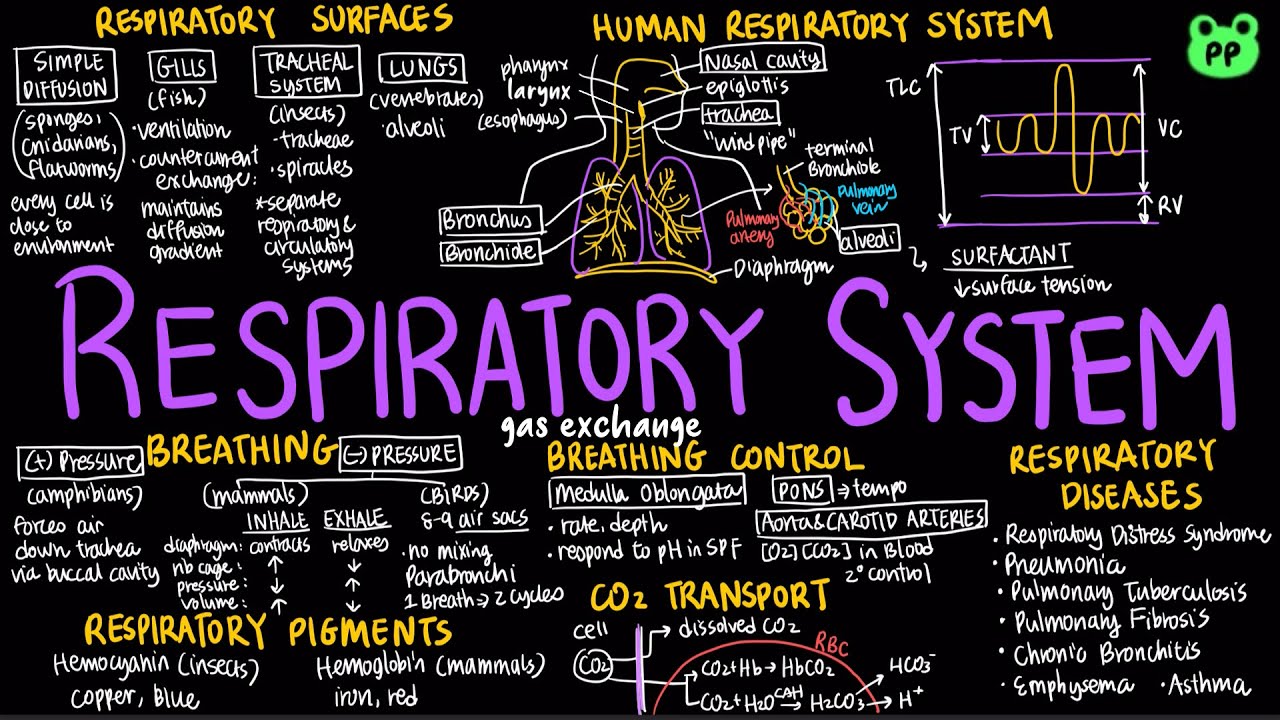 RESPIRATORY SURFACES
SIMPLE
DIFFUSION
(sponges,
cnidarians,
flatworms)
every cell is
close to
environment
GILLS
(fish)
• ventilation
• countercurrent
exchange:
maintains
diffusion
gradient
TRACHEAL
SYSTEM
(insects)
- tracheae
• spiracles
*separate
respiratory &
circulatory
systems
LUNGS
(vertebrates)
alveoli
HUMAN RESPIRATORY SYSTEM
pharynx
larynx
(esophagus)
Nasal cavity
epiglottis
trachea
"windpipe"
terminal
Bronchiole
Pulmonary
vein
Pulmonary
artery
alveoli
Bronchus
Bronchiole
Diaphragm
PP
TLC
TV
VC
RV
SURFACTANT
↓surface tension
RESPIRATORY SYSTEM
gas exchange
BREATHING
(+) Pressure
(amphibians)
forces air
down trachea
via buccal cavity
(-) PRESSURE
(mammals)
INHALE EXHALE
diaphragm: contracts relaxes
rib cage: ↑ ↓
pressure: ↓ ↑
volume: ↑ ↓
(BIRDS)
8-9 air sacs
• no mixing
Parabronchi
1 Breath → 2 cycles
RESPIRATORY PIGMENTS
Hemocyanin (insects)
copper, blue
Hemoglobin (mammals)
iron, red
BREATHING CONTROL
Medulla Oblongata
• rate, depth
• respond to pH in SPF
PONS → tempo
Aorta & CAROTID ARTERIES
[O2] [CO2] in Blood
2° control
CO2 TRANSPORT
cell
CO2
dissolved CO2
RBC
CO2+Hb → HbCO2
CO2+H2O CAH→ H2CO3
HCO3-
H+
RESPIRATORY
DISEASES
• Respiratory Distress Syndrome
• Pneumonia
• Pulmonary Tuberculosis
• Pulmonary Fibrosis
• Chronic Bronchitis
• Emphysema • Asthma